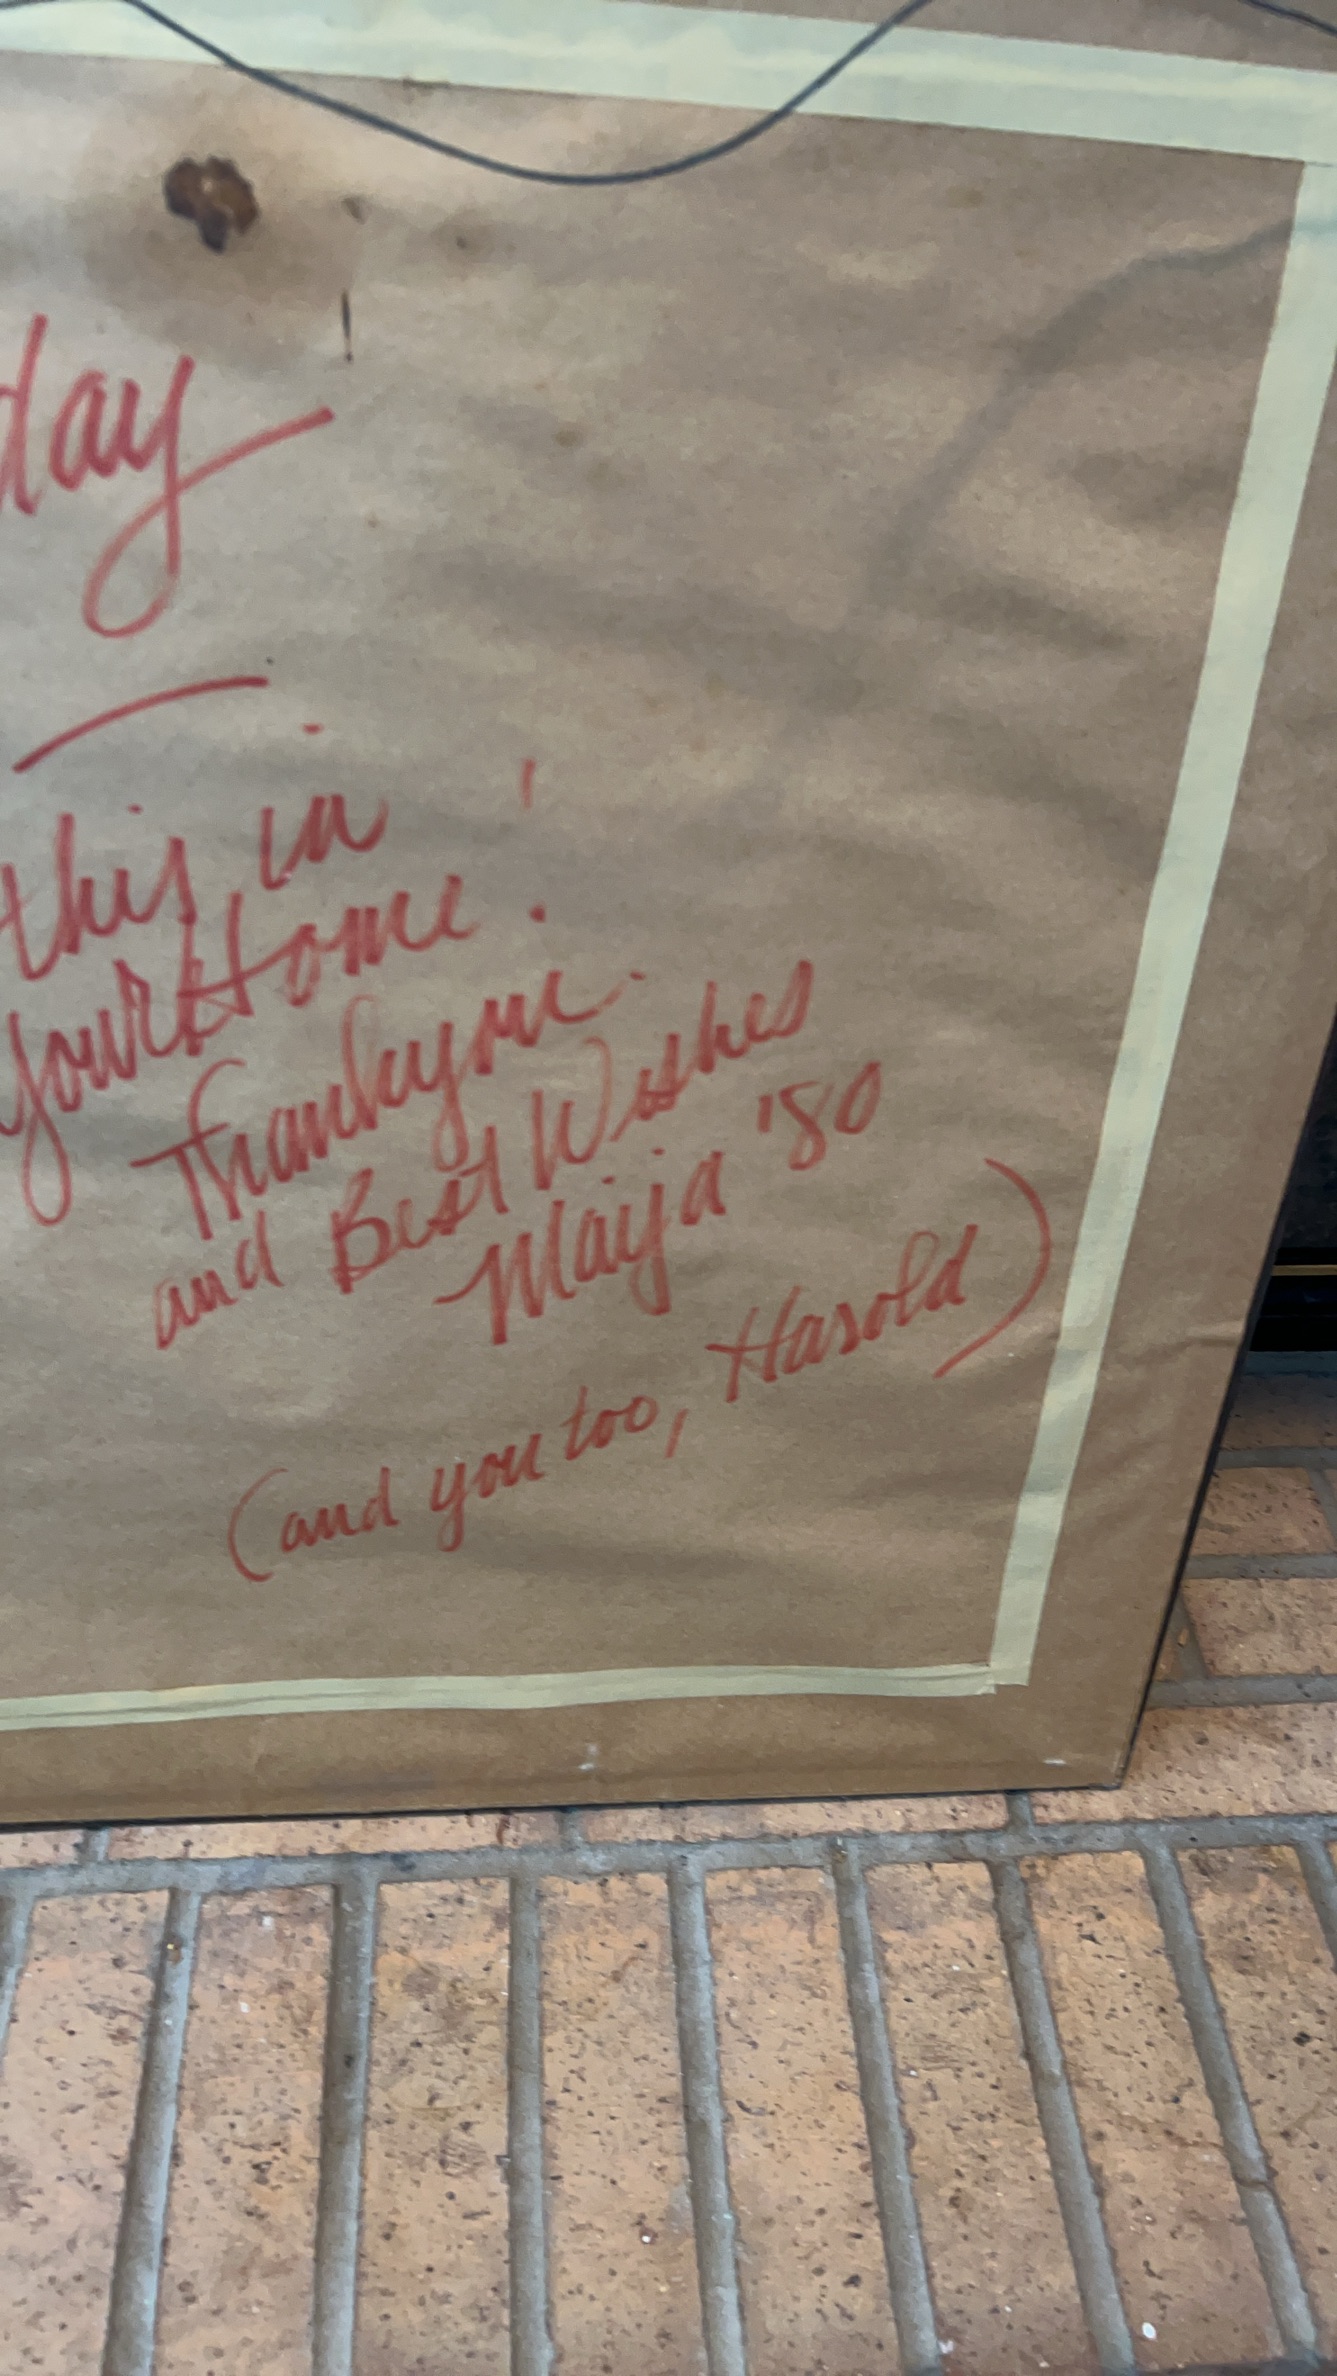 day
this in
your Home!
Thankyou.
and Best Wishes
Maija '80
(and you too, Harold)